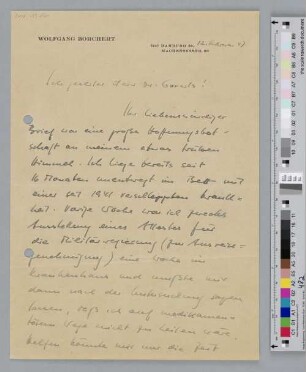 WOLFGANG BORCHERT
Sehr geehrter Herr Dr.
Ihr liebenswürdiger
Brief war eine große Hoffnungsbot-
schaft an meinem etwas trüben
Himmel. Ich liege bereits seit
Monaten unentwegt im Bett mit
einer seit 1941 verschleppten Krank-
heit. Vorige Woche war ich zwecks
Ausstellung eines Attestes für
die Militärregierung (zur Ausreise-
genehmigung) eine Woche im
Krankenhaus und mußte mir
dann nach der Untersuchung sagen
lassen, daß ich auf medikamen-
tösem Wege nicht zu heilen wäre.
Helfen könnte nur die